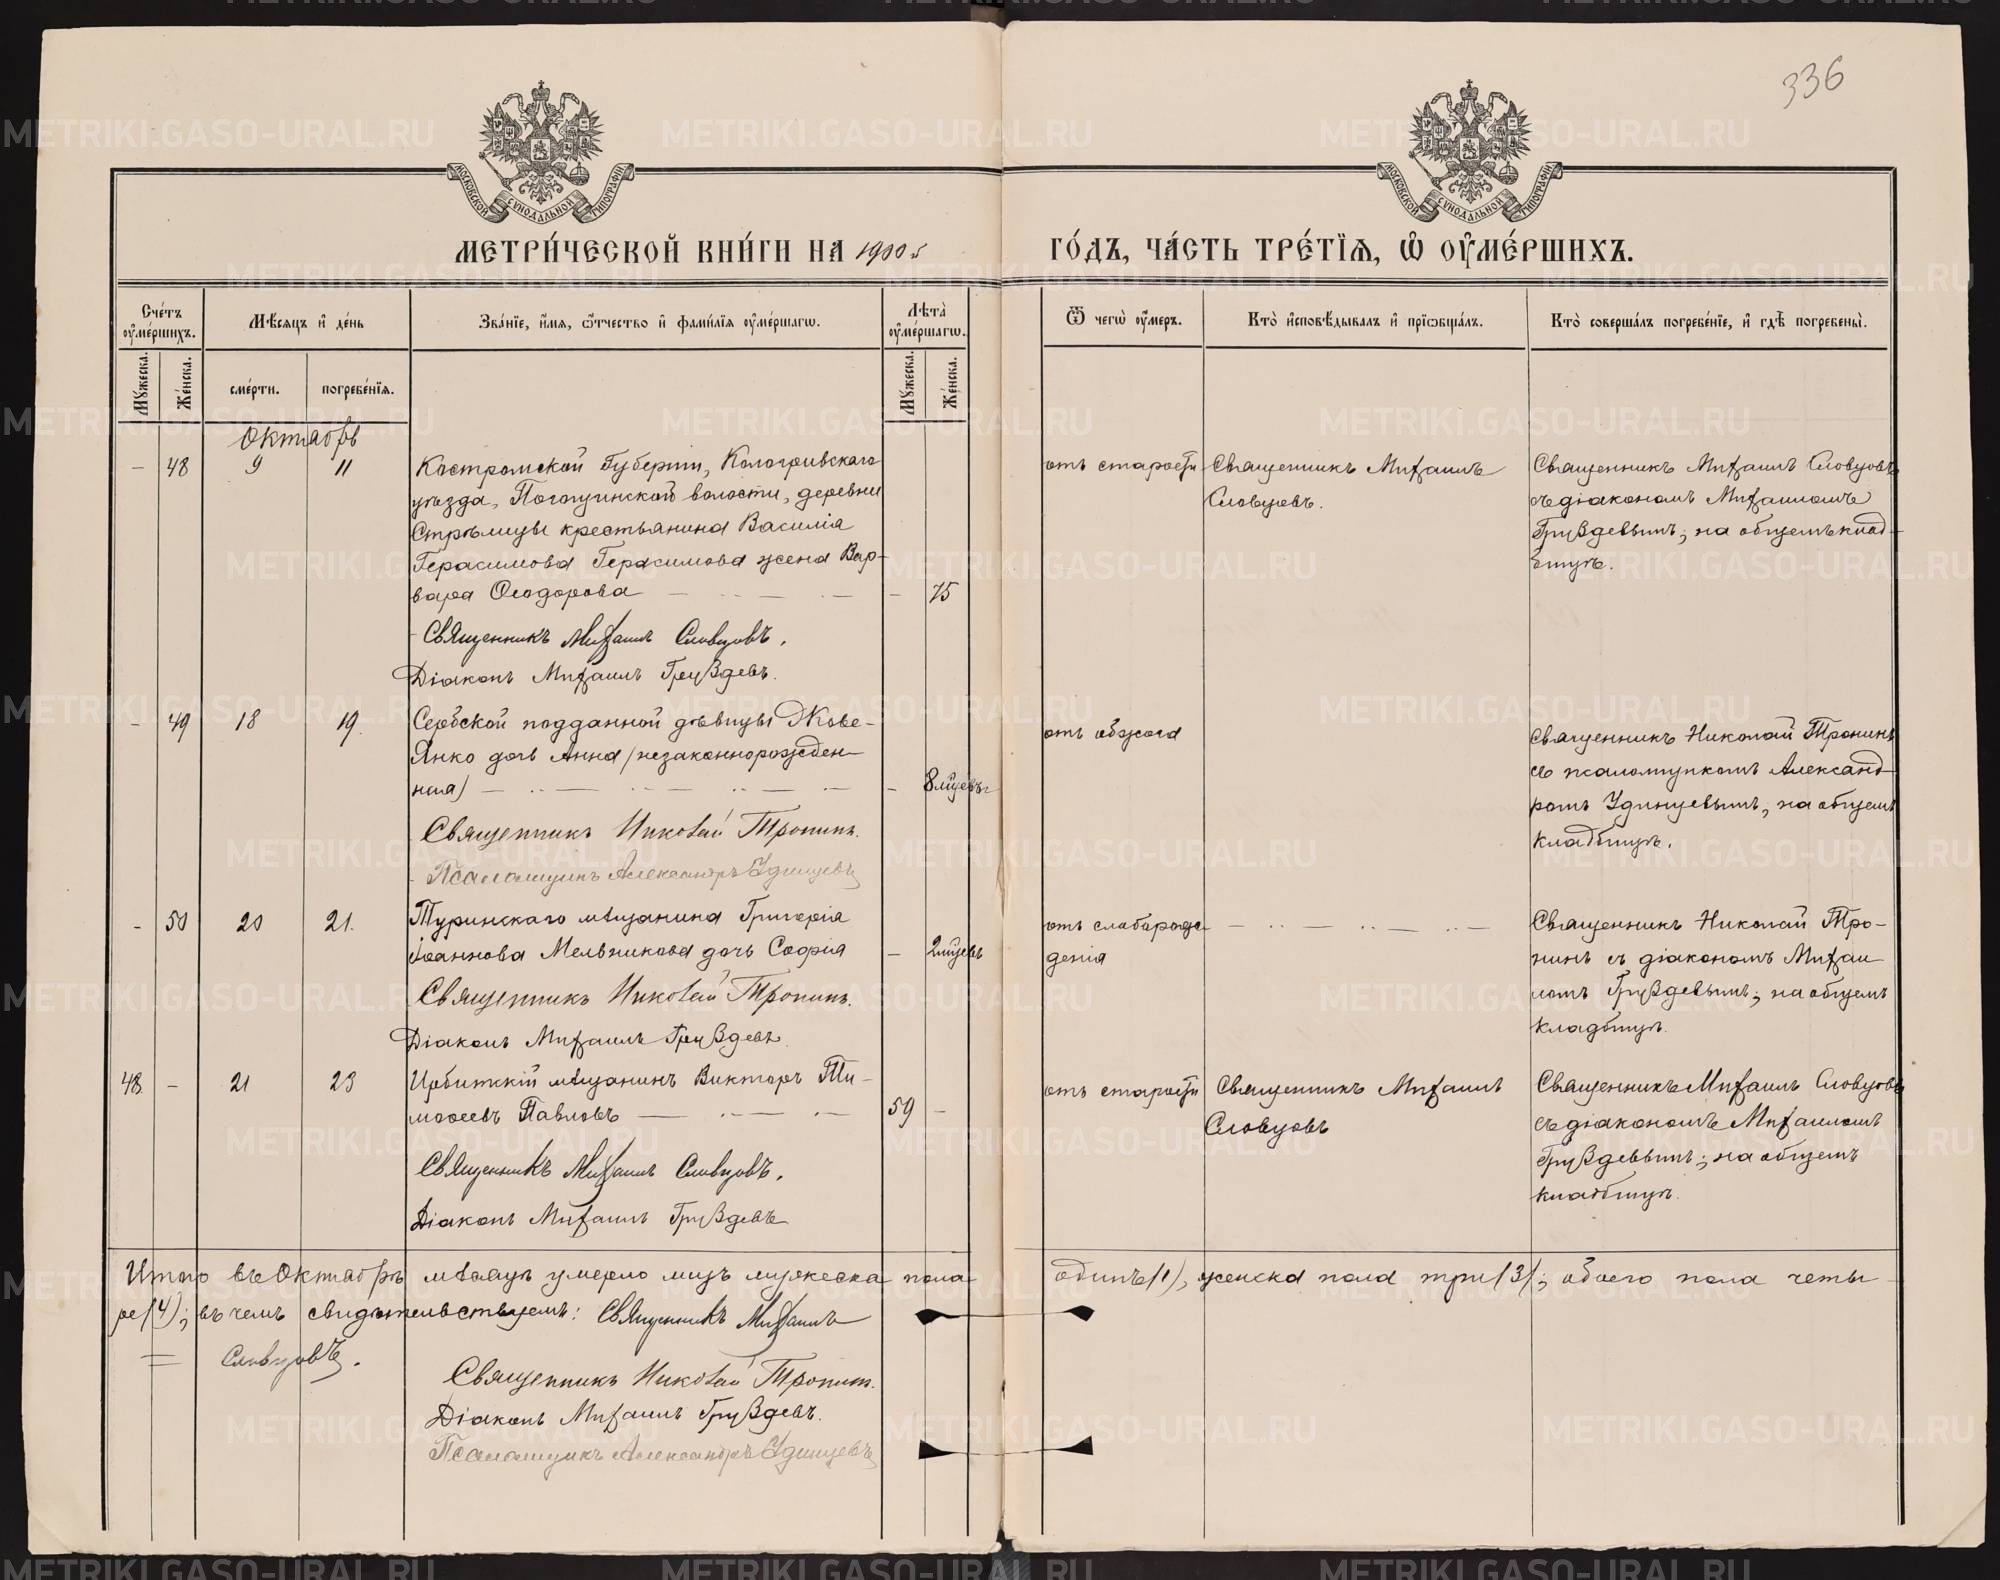 336
МОСКОВСКОЙ СѴНОДАЛЬНОЙ ТИПОГРАФІИ
МОСКОВСКОЙ СѴНОДАЛЬНОЙ ТИПОГРАФІИ
МЕТРИ́ЧЕСКОЙ КНИ́ГИ НА 1900й ГО́ДЪ, ЧА́СТЬ ТРЕ́ТІЯ, Ѽ ОУ҆МЕ́РШИХЪ.
Сче́тъ оу҆ме́ршихъ.
Мꙋжеска.
Же́нска.
Мѣ́сяцъ и҆ де́нь
сме́рти.
погребе́нїѧ.
Зва́нїе, и҆́мѧ, ѻ҆́тчество и҆ фами́лїѧ оу҆ме́ршагѡ.
Лѣ́та оу҆ме́ршагѡ.
Мꙋжеска.
Же́нска.
Ѿ чегѡ̀ оу҆́меръ.
Кто̀ и҆сповѣ́дывалъ и҆ прїѡбща́лъ.
Кто̀ соверша́лъ погребе́нїе, и҆ гдѣ̀ погребены̀.
Октябрь
- 48 9 11
Костромской Губерніи, Кологривскаго
уѣзда, волости, деревни
Стрѣлицы крестьянина Василія
Герасимова Герасимова жена Вар-
вара Ѳеодорова — — - 75
Священникъ Михаилъ Словцовъ.
Діаконъ Михаилъ Груздевъ.
отъ старости
Священникъ Михаилъ
Словцовъ.
Священникъ Михаилъ Словцовъ
съ діакономъ Михаиломъ
Груздевымъ; на общемъ клад-
бищѣ.
- 49 18 19.
Сербской подданной дѣвицы
Янко дочь Анна (незаконнорожден-
ная) — — - 8 мѣсяцевъ
Священникъ Николай Тронинъ.
Псаломщикъ Александръ Удинцевъ
отъ обжога
Священникъ Николай Тронинъ
съ псаломщикомъ Александ-
ромъ Удинцевымъ, на общемъ
кладбищѣ.
- 50 20 21.
Туринскаго мѣщанина Григорія
Іоаннова Мельникова дочь Софія - 2 мѣсяцевъ
Священникъ Николай Тронинъ.
Діаконъ Михаилъ Груздевъ.
отъ слаборож-
денія
Священникъ Николай Тро-
нинъ съ діакономъ Михаи-
ломъ Груздевымъ; на общемъ
кладбищѣ.
48. - 21 23
Ирбитскій мѣщанинъ Викторъ Ти-
моѳеевъ Павловъ — — 59 -
Священникъ Михаилъ Словцовъ.
Діаконъ Михаилъ Груздевъ
отъ старости
Священникъ Михаилъ
Словцовъ
Священникъ Михаилъ Словцовъ
съ діакономъ Михаиломъ
Груздевымъ; на общемъ
кладбищѣ.
Итого въ Октябрѣ мѣсяцѣ умерло лицъ мужеска пола одинъ (1), женска пола три (3); обоего пола четы-
ре (4); въ чемъ свидѣтельствуемъ: Священникъ Михаилъ
Словцовъ.
Священникъ Николай Тронинъ.
Діаконъ Михаилъ Груздевъ.
Псаломщикъ Александръ Удинцевъ
METRIKI.GASO-URAL.RU